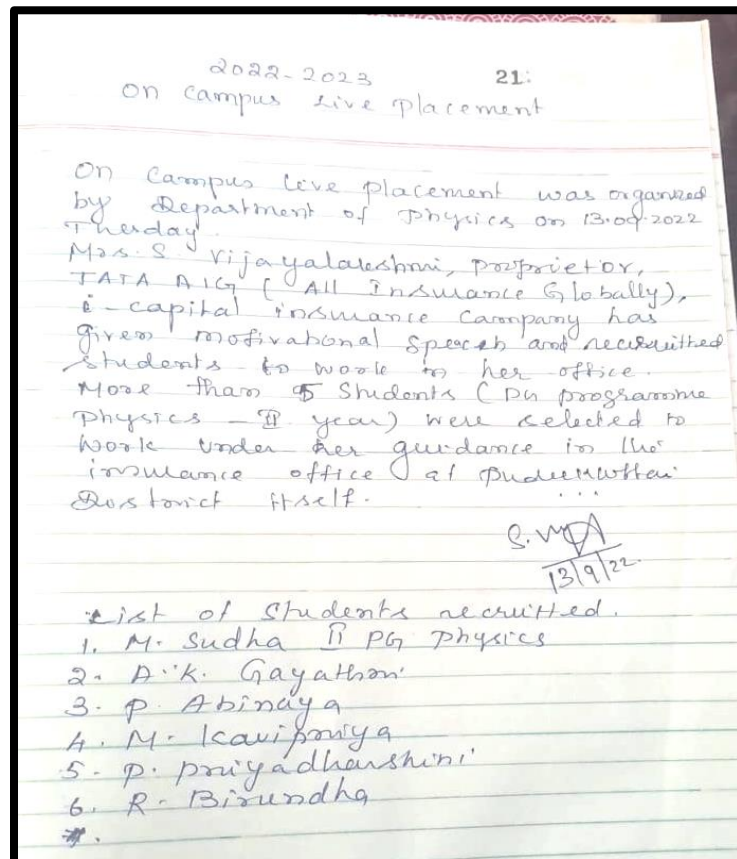 2022-2023 21:
On Campus Live Placement
On Campus live placement was organized
by Department of Physics on 13.09.2022
Thesday.
Mrs. S. Vijayalakshmi, proprietor,
TATA AIG ( All Insurance Globally),
i-capital insurance Campany has
given motivational speech and recruithed
students to work in her office.
More than 5 Students (PG programme
Physics - II year) were selected to
work under her guidance in the
insurance office at Pudukkottai
District itself. ...
13/9/22
List of Students recruitted.
1. M. Sudha II PG Physics
2. A.K. Gayathri
3. P. Abinaya
4. M. Kavipriya
5. P. Priyadharshini
6. R. Birundha